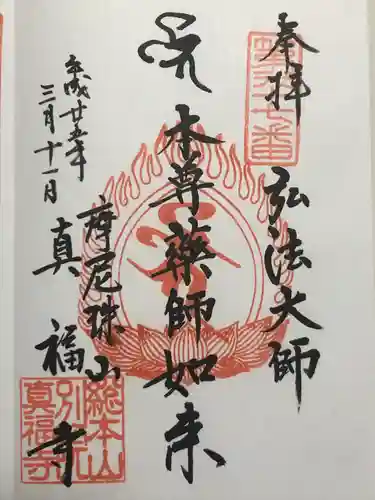 奉拝
弘法大師
本尊薬師如来
摩尼珠山
真福寺
平成廿五年
三月十一日
総本山
別院
真福寺